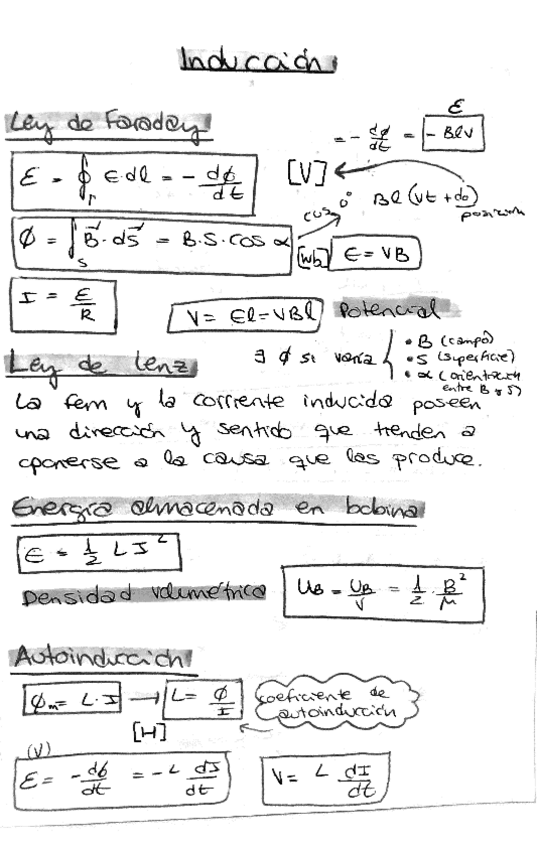 Inducción
Ley de Faraday
ε = ∮_Γ E·dl = - dϕ/dt [V]
= - dϕ/dt = ε - Blv
cos 0° Bl (vt + do) posición
ϕ = ∫_S B⃗·ds⃗ = B·S·cos α [wb] E = VB
I = ε/R
V = El = VBl Potencial
∃ ϕ si varía { • B (campo)
• S (superficie)
• α (orientación entre B y S)
Ley de Lenz
La fem y la corriente inducida poseen
una dirección y sentido que tienden a
oponerse a la causa que las produce.
Energía almacenada en bobina
E = 1/2 L I²
Densidad volumétrica UB = UB/V = 1/2 · B²/μ
Autoinducción
ϕm = L·I → L = ϕ/I coeficiente de
autoinducción
[H]
(V)
ε = - dϕ/dt = - L dI/dt V = L dI/dt